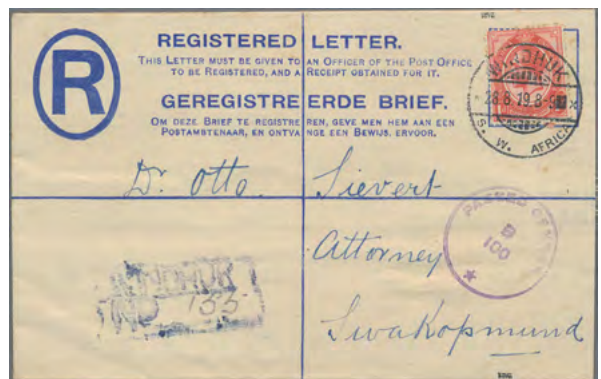 R
REGISTERED LETTER.
THIS LETTER MUST BE GIVEN TO AN OFFICER OF THE POST OFFICE
TO BE REGISTERED, AND A RECEIPT OBTAINED FOR IT.
GEREGISTREERDE BRIEF.
OM DEZE BRIEF TE REGISTREREN, GEVE MEN HEM AAN EEN
POSTAMBTENAAR, EN ONTVANGE EEN BEWIJS ERVOOR.
WINDHUK
28.8.19.8-9
S. W. AFRICA
Dr. Otto Sievert
Attorney
Swakopmund
PASSED
100
WINDHUK
NO 155